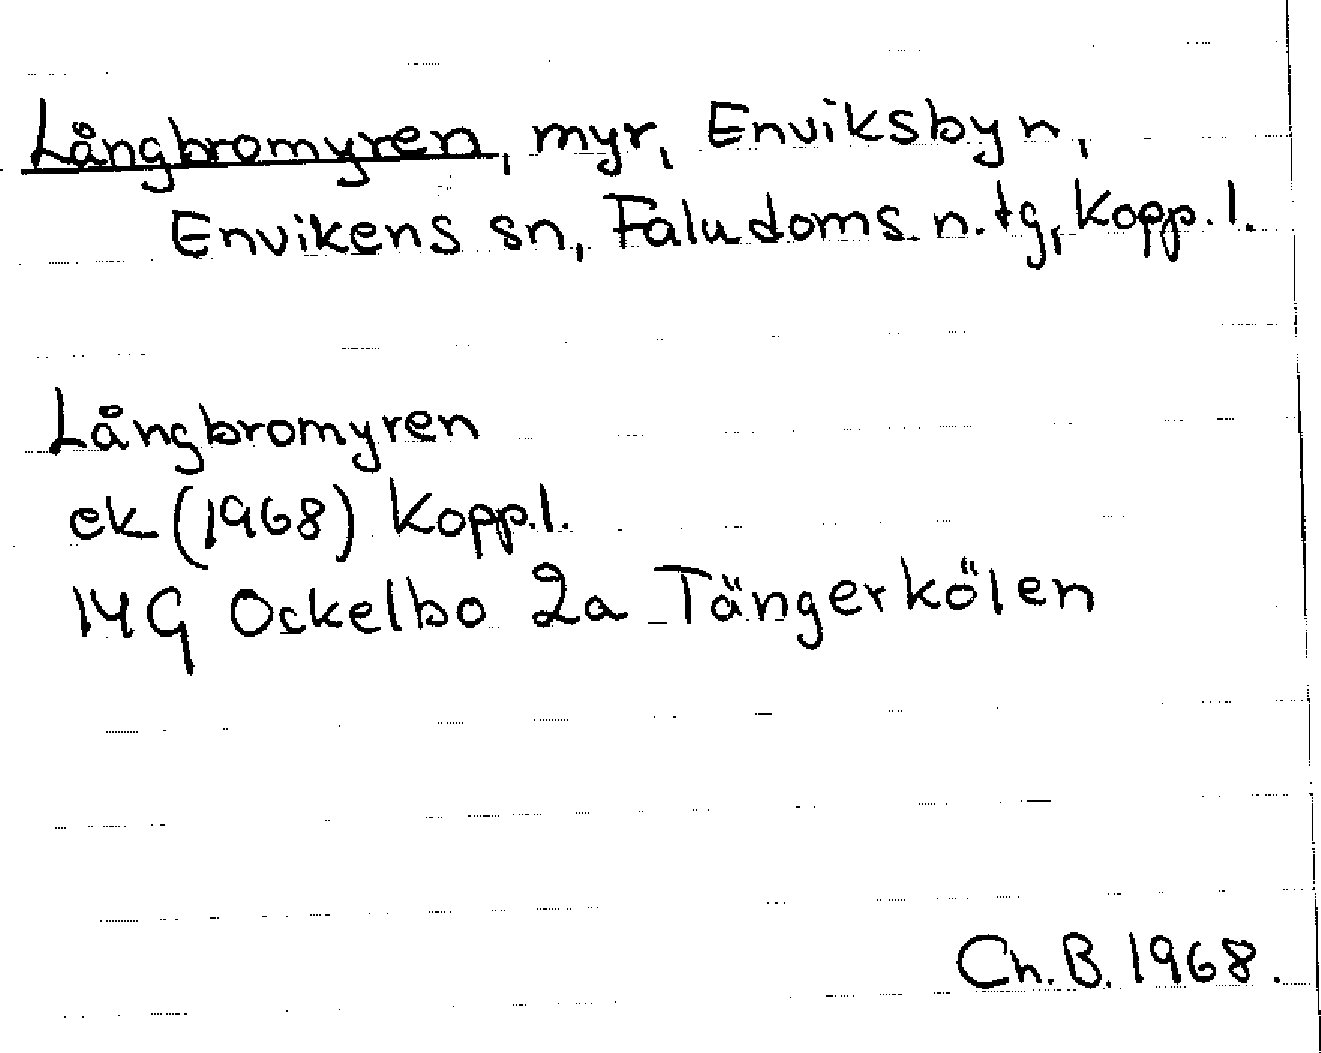 Långbromyren, myr, Enviksbyn,
Envikens sn, Faludoms n. tg, Kopp. l.
Långbromyren
ek (1968) Kopp.l.
14G Ockelbo 2a Tängerkölen
Ch. B. 1968.